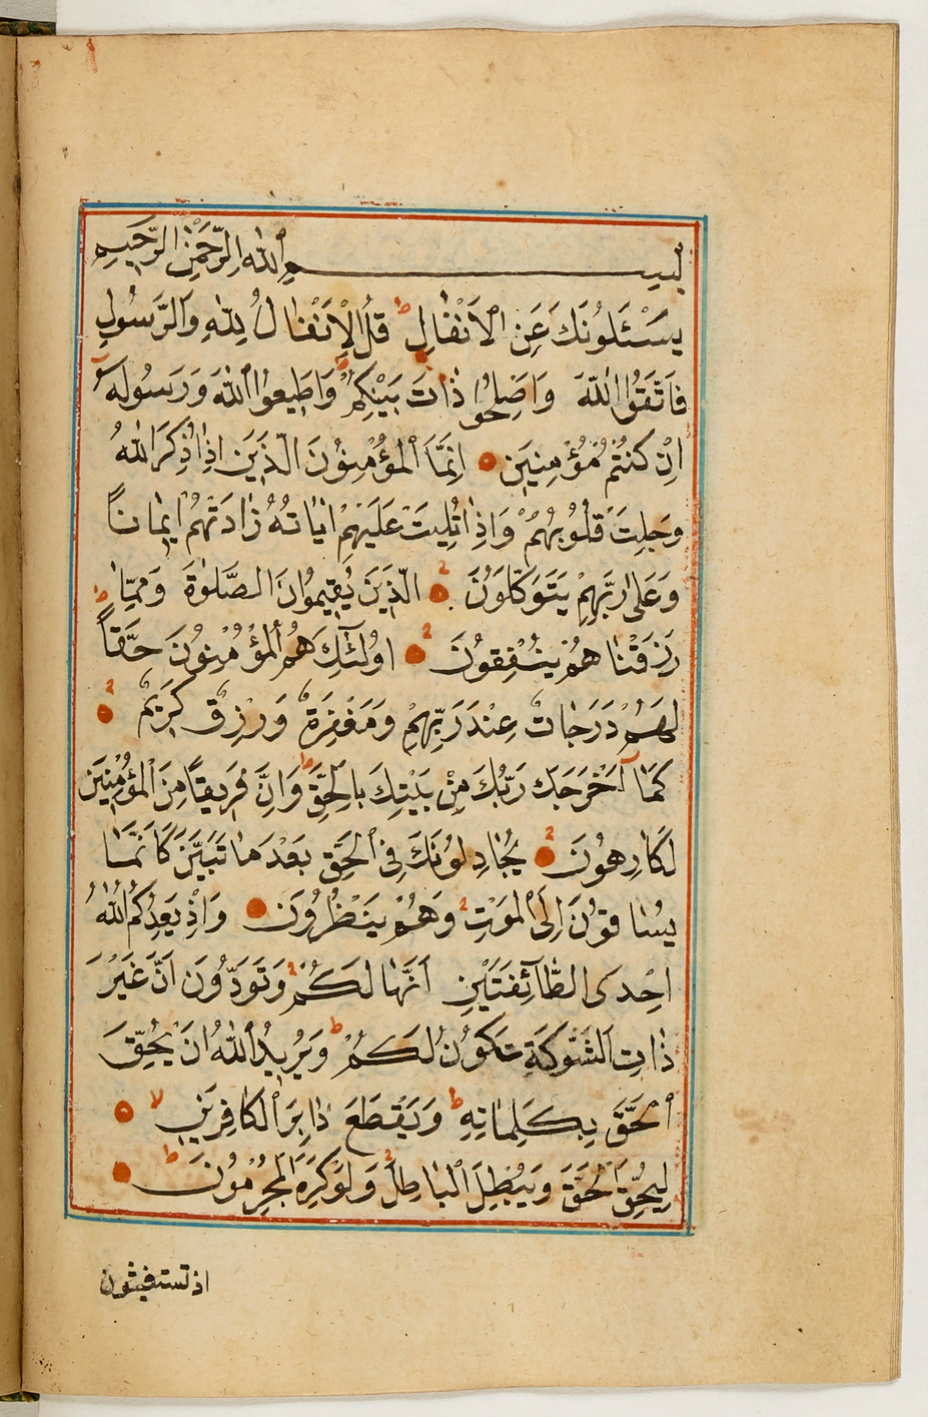 بسم الله الرحمن الرحيم
يَسْئَلُونَكَ عَنِ الْاَنْفَالِ ط قُلِ الْاَنْفَالُ لِلّٰهِ وَالرَّسُولِ
فَاتَّقُوا اللّٰهَ وَاَصْلِحُوا ذَاتَ بَيْنِكُمْ وَاَطِيعُوا اللّٰهَ وَرَسُولَهُ
اِنْ كُنْتُمْ مُؤْمِنِينَ اِنَّمَا الْمُؤْمِنُونَ الَّذِينَ اِذَا ذُكِرَ اللّٰهُ
وَجِلَتْ قُلُوبُهُمْ وَاِذَا تُلِيَتْ عَلَيْهِمْ اٰيَاتُهُ زَادَتْهُمْ اِيمَانًا
وَعَلٰى رَبِّهِمْ يَتَوَكَّلُونَ الَّذِينَ يُقِيمُونَ الصَّلٰوةَ وَمِمَّا
رَزَقْنَاهُمْ يُنْفِقُونَ اُولٰٓئِكَ هُمُ الْمُؤْمِنُونَ حَقًّا ط
لَهُمْ دَرَجَاتٌ عِنْدَ رَبِّهِمْ وَمَغْفِرَةٌ وَرِزْقٌ كَرِيمٌ
كَمَٓا اَخْرَجَكَ رَبُّكَ مِنْ بَيْتِكَ بِالْحَقِّ ط وَاِنَّ فَرِيقًا مِنَ الْمُؤْمِنِينَ
لَكَارِهُونَ يُجَادِلُونَكَ فِى الْحَقِّ بَعْدَ مَا تَبَيَّنَ كَاَنَّمَا
يُسَاقُونَ اِلَى الْمَوْتِ وَهُمْ يَنْظُرُونَ وَاِذْ يَعِدُكُمُ اللّٰهُ
اِحْدَى الطَّٓائِفَتَيْنِ اَنَّهَا لَكُمْ وَتَوَدُّونَ اَنَّ غَيْرَ
ذَاتِ الشَّوْكَةِ تَكُونُ لَكُمْ ط وَيُرِيدُ اللّٰهُ اَنْ يُحِقَّ
الْحَقَّ بِكَلِمَاتِهِ ط وَيَقْطَعَ دَابِرَ الْكَافِرِينَ لا
لِيُحِقَّ الْحَقَّ وَيُبْطِلَ الْبَاطِلَ وَلَوْ كَرِهَ الْمُجْرِمُونَ ط
اذ تستغيثون